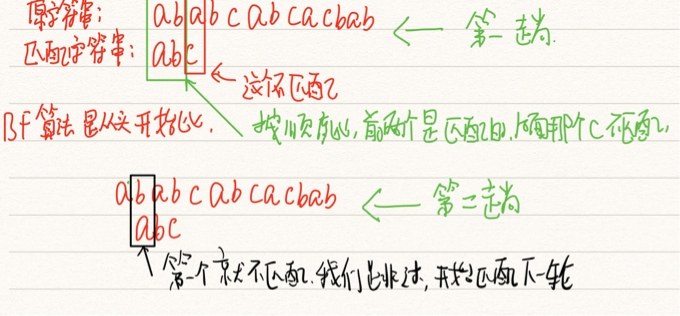 原字符串: ababcabcacbab ← 第一趟.
匹配字符串: abc
← 这个不匹配
Bf 算法是从头开始比. 按顺序比, 前两个是匹配的, 后面那个C不匹配,
ababcabcacbab ← 第二趟
abc
第一个就不匹配. 我们跳过, 开始匹配下一轮